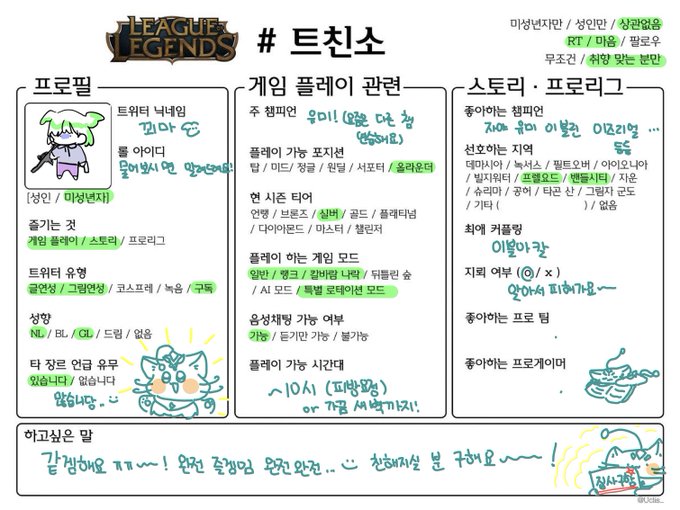 LEAGUE of LEGENDS
# 트친소
미성년자만 / 성인만 / 상관없음
RT / 마음 / 팔로우
무조건 / 취향 맞는 분만
프로필
트위터 닉네임
꼬마
롤 아이디
물어보시면 알려드려요!
[성인 / 미성년자]
즐기는 것
게임 플레이 / 스토리 / 프로리그
트위터 유형
글연성 / 그림연성 / 코스프레 / 녹음 / 구독
성향
NL / BL / GL / 드림 / 없음
타 장르 언급 유무
있습니다 / 없습니다
많습니당..
게임 플레이 관련
주 챔피언
유미! (요즘은 다른 챔
연습해요)
플레이 가능 포지션
탑 / 미드/ 정글 / 원딜 / 서포터 / 올라운더
현 시즌 티어
언랭 / 브론즈 / 실버 / 골드 / 플래티넘
/ 다이아몬드 / 마스터 / 챌린저
플레이 하는 게임 모드
일반 / 랭크 / 칼바람 나락 / 뒤틀린 숲
/ AI 모드 / 특별 로테이션 모드
음성채팅 가능 여부
가능 / 듣기만 가능 / 불가능
플레이 가능 시간대
~10시 (피방요정)
or 가끔 새벽까지!
스토리 · 프로리그
좋아하는 챔피언
자야 유미 이블린 이즈리얼 ...
등등
선호하는 지역
데마시아 / 녹서스 / 필트오버 / 아이오니아
/ 빌지워터 / 프렐요드 / 밴들시티 / 자운
/ 슈리마 / 공허 / 타곤 산 / 그림자 군도
/ 기타 ( ) / 없음
최애 커플링
이블아칼
지뢰 여부 ( o / x )
알아서 피해가요~
좋아하는 프로 팀
좋아하는 프로게이머
하고싶은 말
같겜해요 ㅠㅠ~~! 완전 즐겜임 완전완전.. 친해지실 분 구해요~~~!
집사구함
@Uclis_